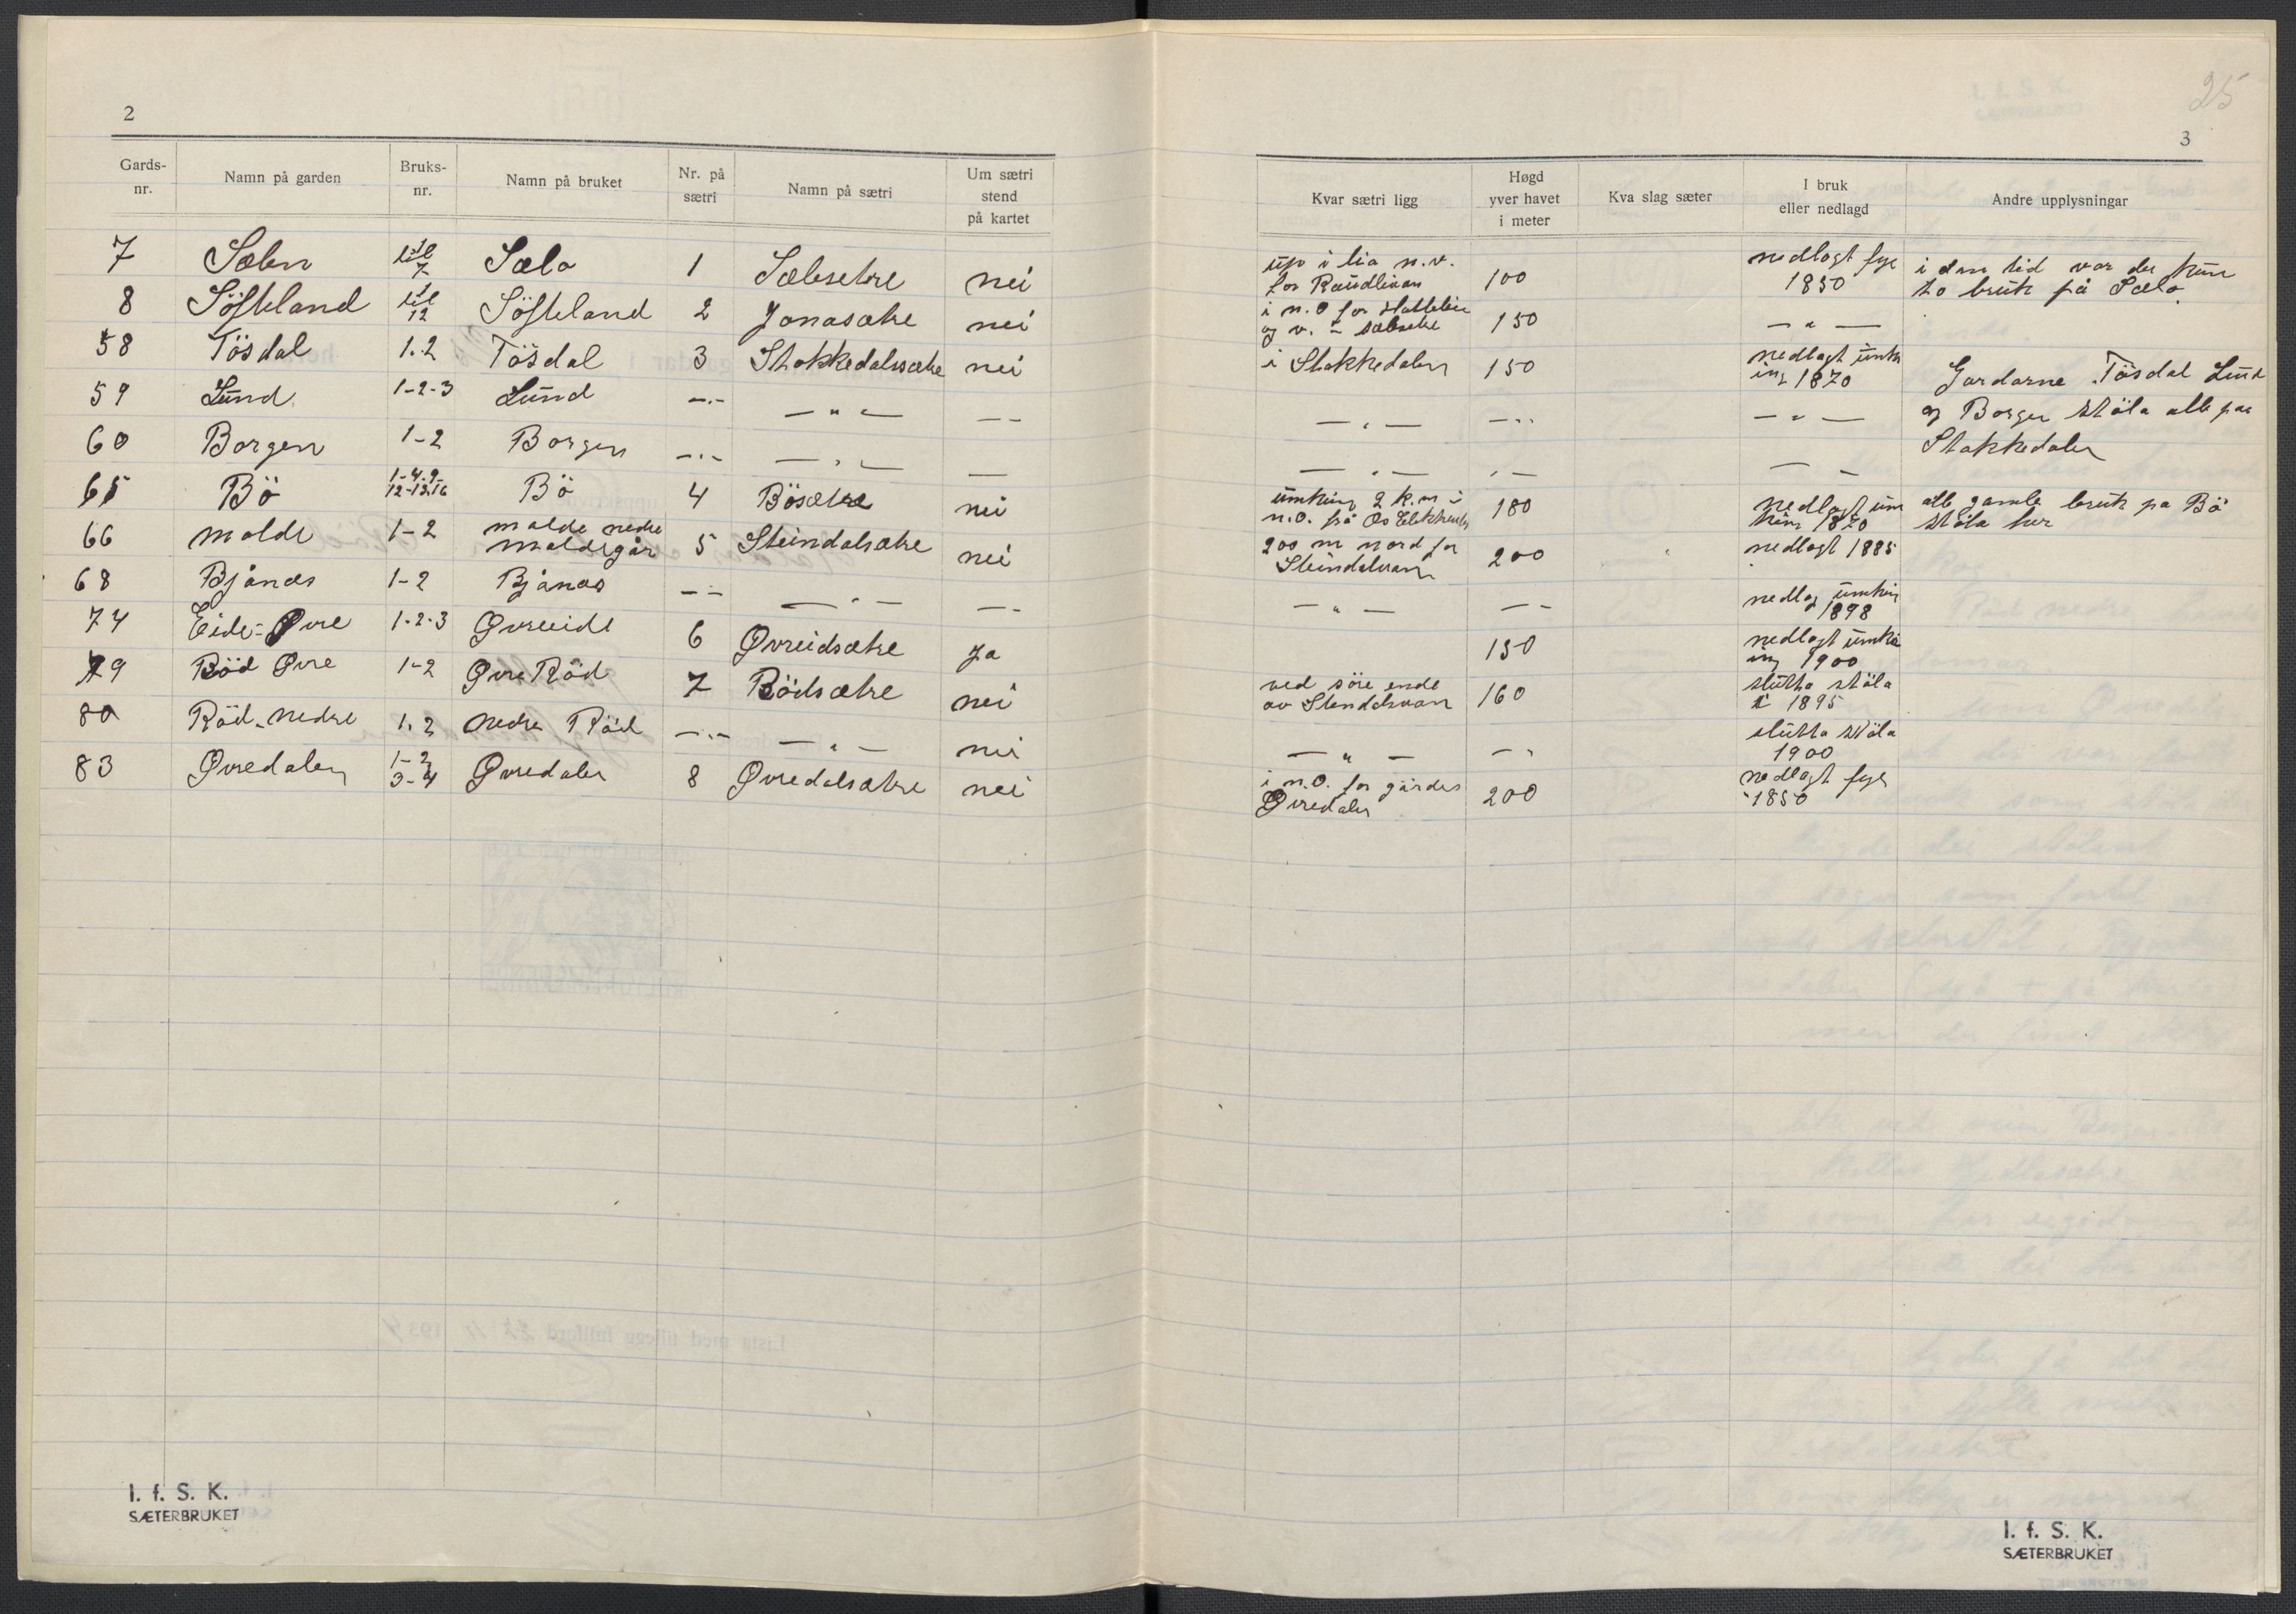 2
Gards-nr. Namn på garden Bruks-nr. Namn på bruket Nr. på sætri Namn på sætri Um sætri stend på kartet
7 Sælen 1 til 7 Sælo 1 Sælesetre nei
8 Söfteland 1 til 12 Söfteland 2 Jonasætre nei
58 Tösdal 1.2 Tösdal 3 Stokkedalssætre nei
59 Lund 1-2-3 Lund —.— — " — — —
60 Borgen 1-2 Borgen —.— — " — —
65 Bö 1-4-9- 12-13.16 Bö 4 Bösætre nei
66 Molde 1-2 Molde nedre Moldegår 5 Steindalsætre nei
68 Bjånæs 1-2 Bjånæs — — — " — — —
74 Eide-Øvre 1-2-3 Øvreeide 6 Øvreidsætre Ja
79 Röd Øvre 1-2 Øvre Röd 7 Rödsætre nei
80 Röd-nedre 1.2 nedre Röd —.— — " — nei
83 Øvredalen 1-2 3-4 Øvredalen 8 Øvredalsætre nei
I. f. S. K.
SÆTERBRUKET
25
3
Kvar sætri ligg Høgd yver havet i meter Kva slag sæter I bruk eller nedlagd Andre upplysningar
up i lia n.v. 100 nedlagt fyr i dan tid var der kun
for Raudlivan 1850 to bruk på Sælo.
i n.O for
og v. 150 — " —
i Stokkedalen 150 nedlagt umkring 1870 Gardarne Tösdal Lund
— " — — " — " — og Borgen stöla alle paa
— " — " — — — Stokkedalen
umkring 2 k.m i 180 nedlagt um alle gamle bruk pa Bö
n.O. frå Os kring 1870 stöla her
200 m nord for 200 nedlagt 1885
Steindalsvann
— " — — — nedlag umkrin 1898
150 nedlagt umkring 1900
ved söre ende 160 slutta stöla
av Stendalsvan i 1895
— " — — " slutta stöla 1900
i n.O. for gårdes 200 nedlagt fyr
Øvredalen 1850
I. f. S. K.
SÆTERBRUKET